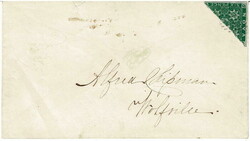 Alfred Chipman
Wolfville